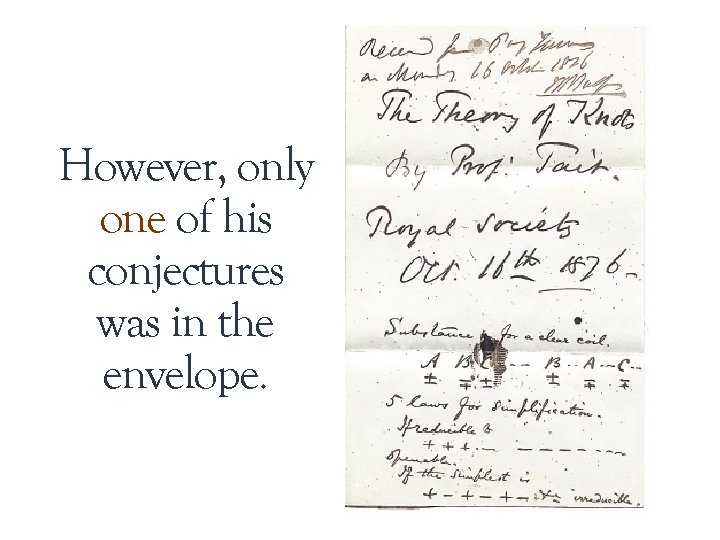 However, only
one of his
conjectures
was in the
envelope.
16 Octbr 1876
The Theory of Knots
By Prof. Tait.
Royal Society
Oct. 16th 1876
Substance for a clear coil.
A B C - - B - - A - - C - -
± ∓ ± ± ∓ ∓
5 laws for simplification.
If reducible &
+ + + - - - - - - - - -
openable.
If the simplest is
+ - + - + - irreducible.